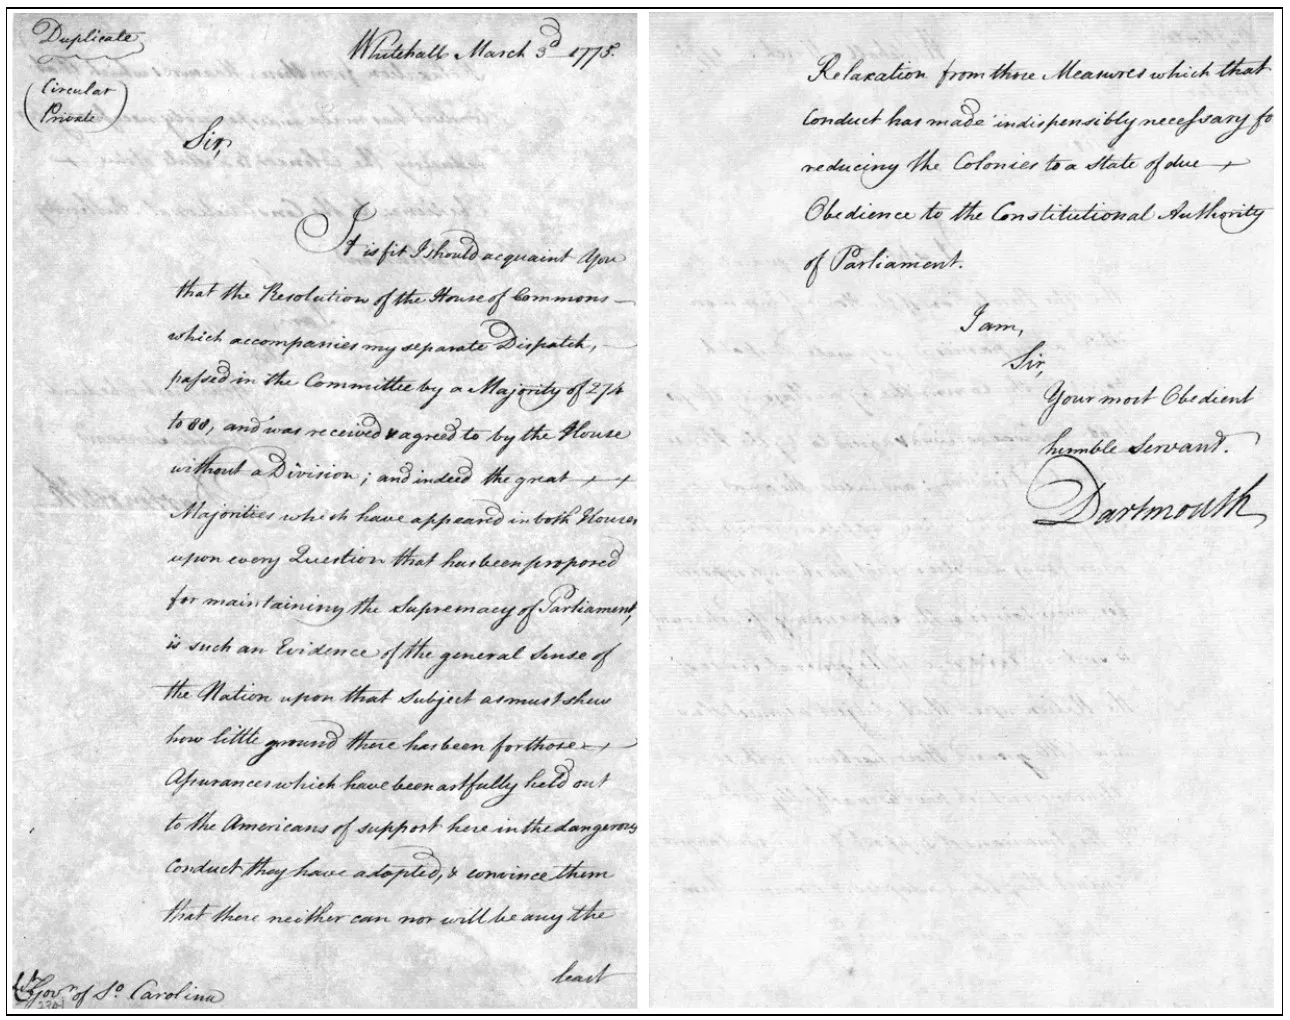 Duplicate
Circular
Private
Whitehall March 3d 1775.
Sir,
It is fit I should acquaint You
that the Resolution of the House of Commons
which accompanies my separate Dispatch,
passed in the Committee by a Majority of 274
to 88, and was received & agreed to by the House
without a Division; and indeed the great
Majorities which have appeared in both Houses
upon every Question that has been proposed
for maintaining the Supremacy of Parliament,
is such an Evidence of the general Sense of
the Nation upon that subject as must shew
how little ground there has been for those
Assurances which have been artfully held out
to the Americans of support here in the dangerous
conduct they have adopted, & convince them
that there neither can nor will be any the
least
Govr. of So. Carolina
Relaxation from those Measures which that
conduct has made indispensibly necessary fo
reducing the Colonies to a state of due
Obedience to the Constitutional Authority
of Parliament.
I am,
Sir,
Your most Obedient
humble Servant.
Dartmouth